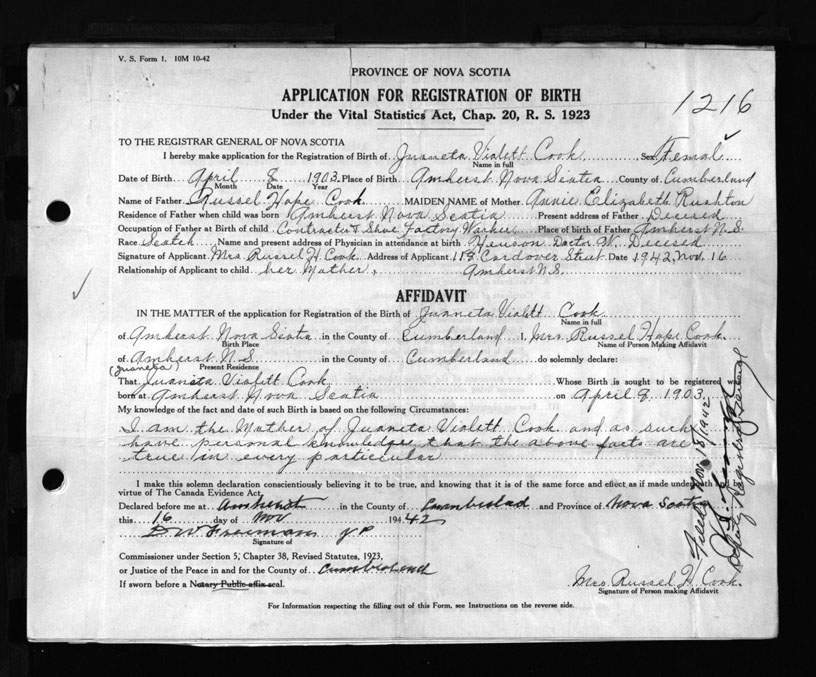 V. S. Form 1. 10M 10-42
PROVINCE OF NOVA SCOTIA
APPLICATION FOR REGISTRATION OF BIRTH
1216
Under the Vital Statistics Act, Chap. 20, R. S. 1923
TO THE REGISTRAR GENERAL OF NOVA SCOTIA
I hereby make application for the Registration of Birth of Juaneta Violett Cook Sex Femal
Name in full
Date of Birth April 8 1903 Place of Birth Amherst Nova Scotia County of Cumberland
Month Date Year
Name of Father Russel Hope Cook MAIDEN NAME of Mother Annie Elizabeth Rushton
Residence of Father when child was born Amherst Nova Scotia Present address of Father Decesed
Occupation of Father at Birth of child Contracter & Shoe Factory Worker Place of birth of Father Amherst N.S.
Race Scotch Name and present address of Physician in attendance at birth Henson Doctor W. Decesed
Signature of Applicant Mrs. Russel H. Cook Address of Applicant 113 Cordover Street Date 1942, Nov. 16
Relationship of Applicant to child her Mother, Amherst N.S.
AFFIDAVIT
IN THE MATTER of the application for Registration of the Birth of Juaneta Violett Cook
Name in full
of Amherst Nova Scotia in the County of Cumberland I, Mrs. Russel Hope Cook
Birth Place Name of Person Making Affidavit
of Amherst N.S in the County of Cumberland do solemnly declare:
Present Residence
(Juaneta)
That Juaneta Violett Cook Whose Birth is sought to be registered was
born at Amherst Nova Scotia on April 8, 1903
My knowledge of the fact and date of such Birth is based on the following Circumstances:
I am the Mother of Juaneta Violett Cook and as such
have personal knowledge that the above facts are
true in every particular
I make this solemn declaration conscientiously believing it to be true, and knowing that it is of the same force and effect as if made under
virtue of The Canada Evidence Act.
Declared before me at Amherst in the County of Cumberland and Province of Nova Scotia
this 16 day of Nov 1942
D W Freeman J P
Signature of
Commissioner under Section 5, Chapter 38, Revised Statutes, 1923,
or Justice of the Peace in and for the County of Cumberland
If sworn before a Notary Public affix seal.
Mrs. Russel H. Cook.
Signature of Person making Affidavit
For Information respecting the filling out of this Form, see Instructions on the reverse side.
Filed Nov 18/1942
Deputy Registrar General